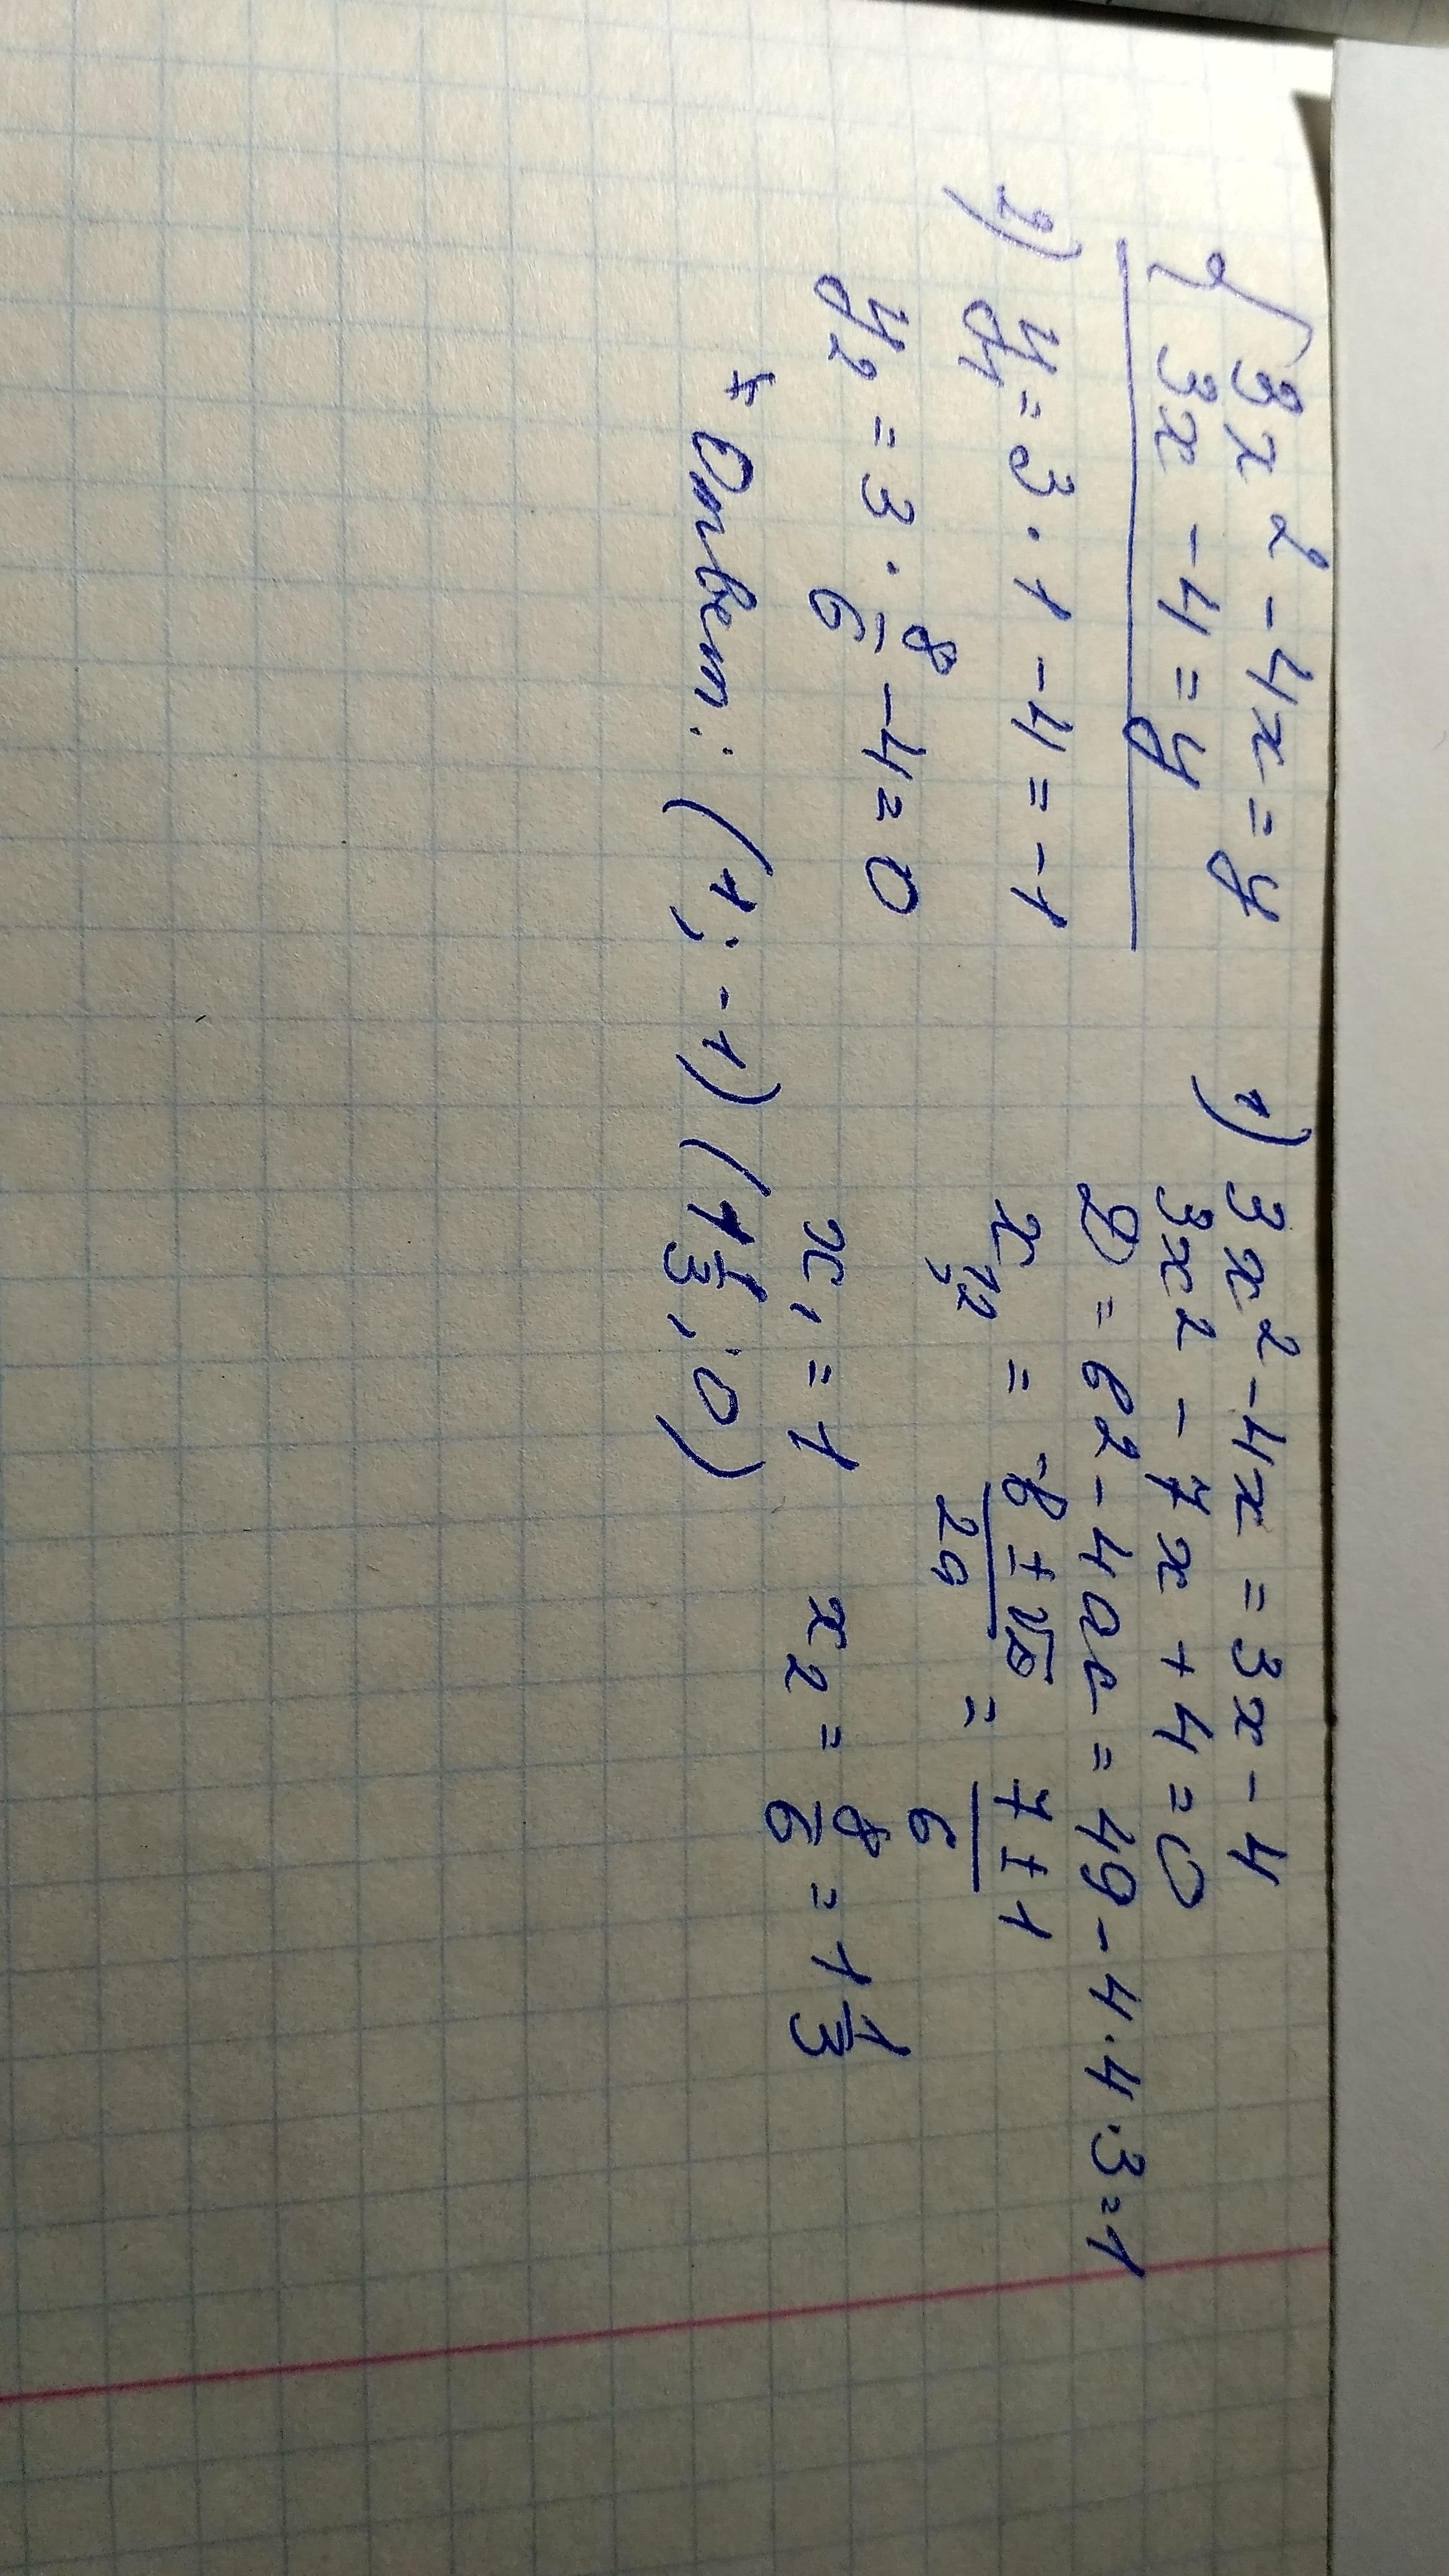 {3x² - 4x = y
3x - 4 = y
1) 3x² - 4x = 3x - 4
3x² - 7x + 4 = 0
D = b² - 4ac = 49 - 4·4·3 = 1
x₁,₂ = (-b ± √D)/2a = (7 ± 1)/6
x₁ = 1 x₂ = 8/6 = 1 1/3
2) y₁ = 3·1 - 4 = -1
y₂ = 3·8/6 - 4 = 0
Ответ: (1; -1) (1 1/3; 0)